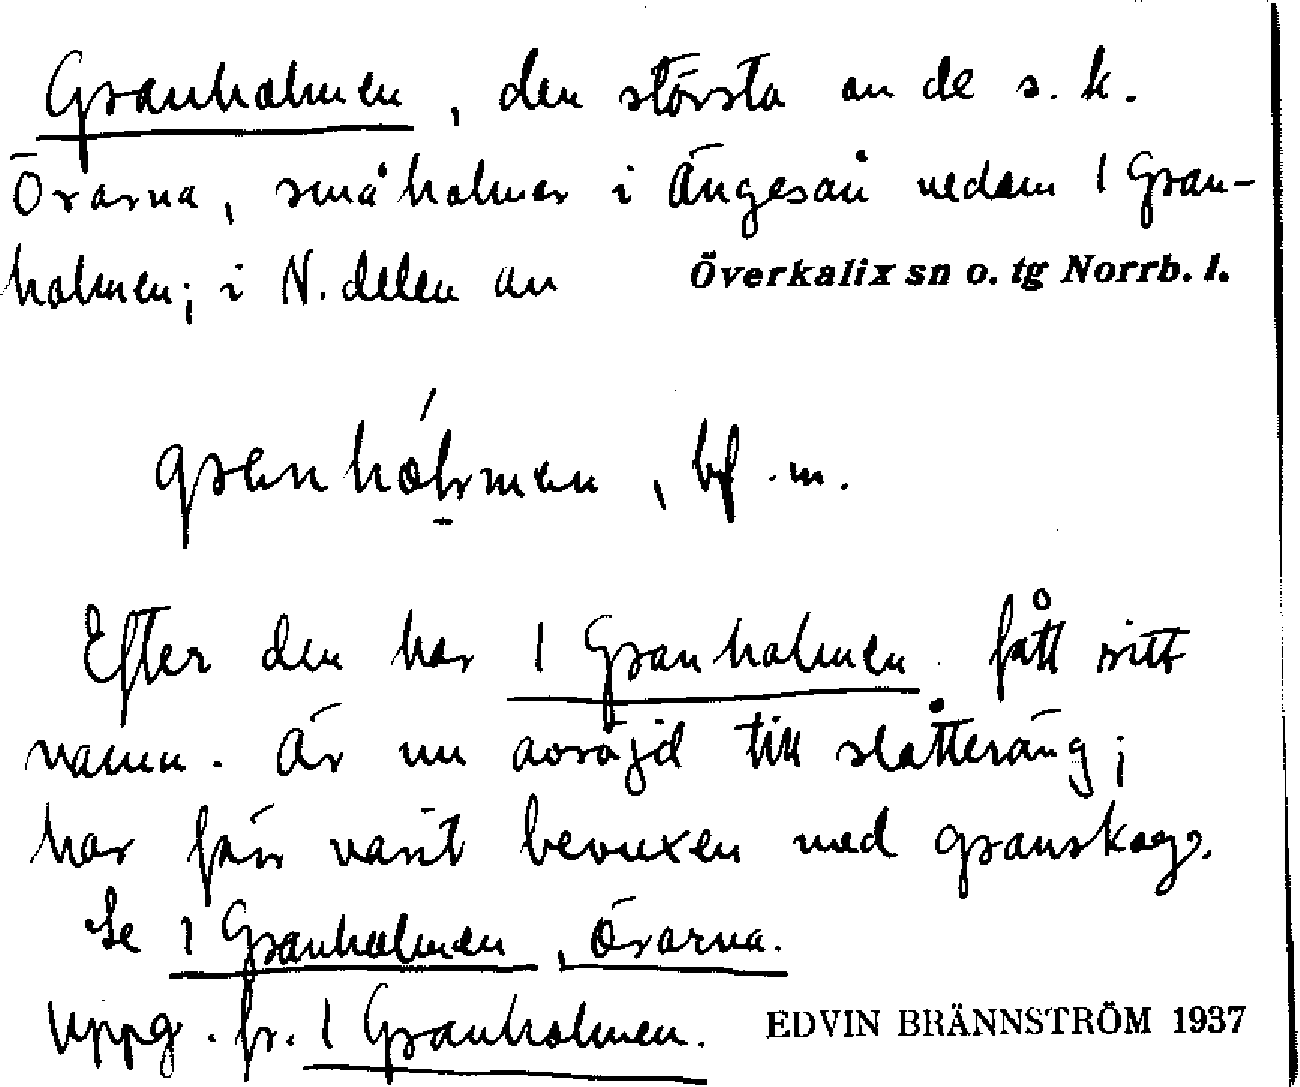 Granholmen, den största av de s.k.
Örarna, småholmar i Ängesån nedom 1 Gran-
holmen; i N. delen av Överkalix sn o. tg Norrb. l.
bf. m.
Efter den har 1 Granholmen fått sitt
namn. Är nu avröjd till slåtteräng;
har förr varit bevuxen med granskog.
Se 1 Granholmen, Örarna.
Uppg. fr. 1 Granholmen. EDVIN BRÄNNSTRÖM 1937